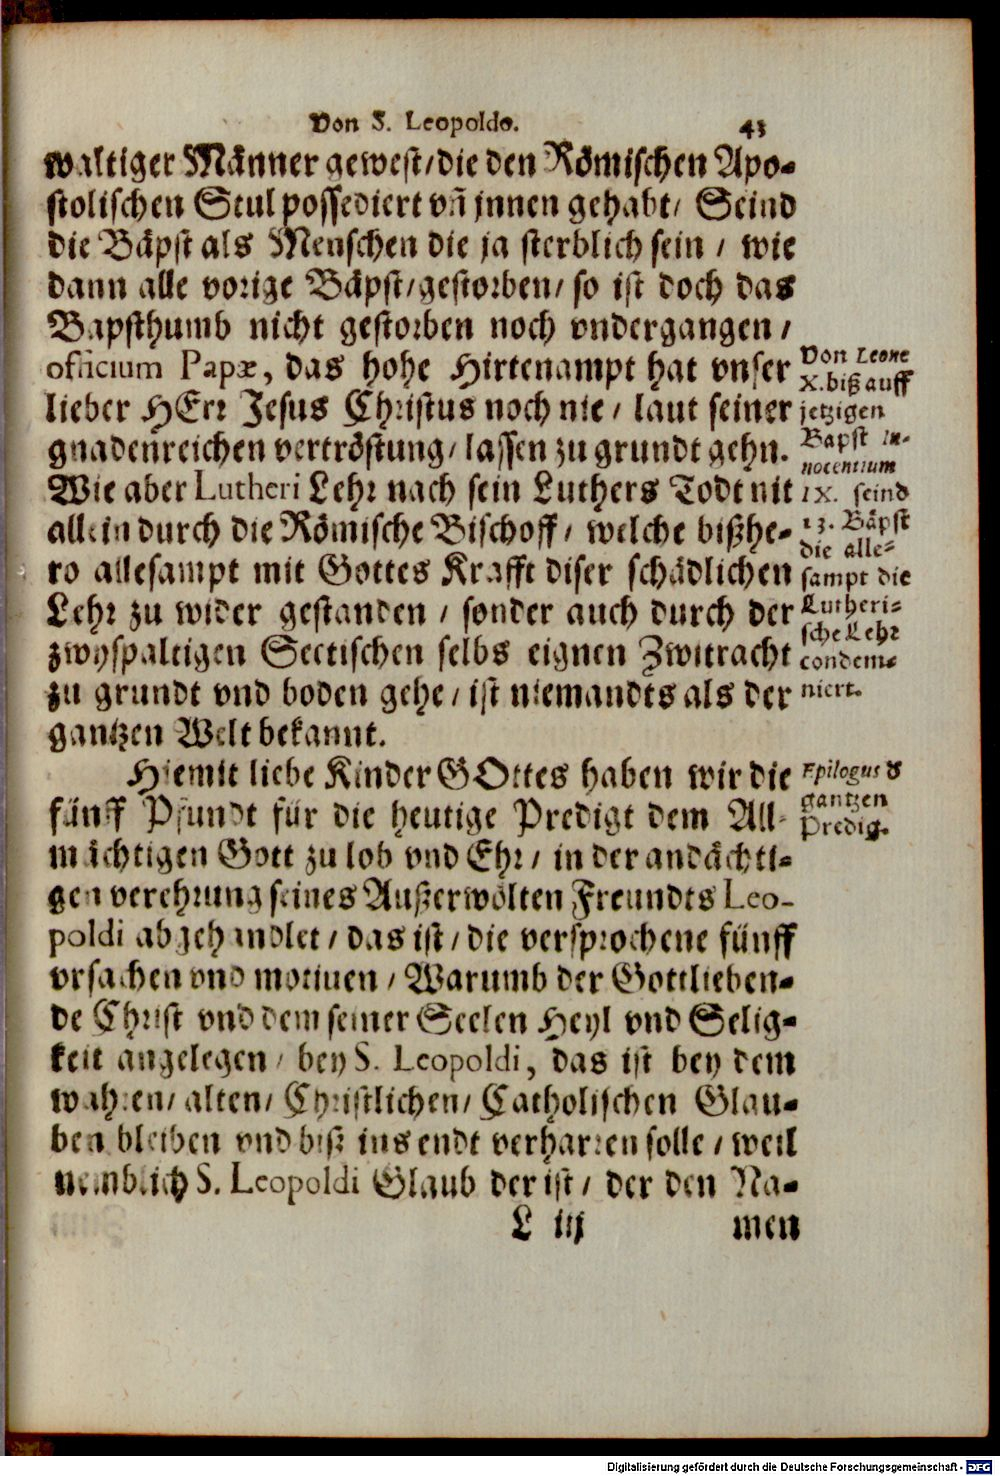 Von S. Leopoldo. 43
waltiger Männer gewest/ die den Römischen Apo-
stolischen Stul possediert vñ jnnen gehabt/ Seind
die Bäpst als Menschen die ja sterblich sein / wie
dann alle vorige Bäpst/ gestorben/ so ist doch das
Bapsthumb nicht gestorben noch vndergangen /
officium Papæ, das hohe Hirtenampt hat vnser
lieber HErr Jesus Christus noch nie / laut seiner
gnadenreichen vertröstung/ lassen zu grundt gehn.
Wie aber Lutheri Lehr nach sein Luthers Todt nit
allein durch die Römische Bischoff/ welche bißhe-
ro allesampt mit Gottes Krafft diser schädlichen
Lehr zu wider gestanden / sonder auch durch der
zwyspaltigen Sectischen selbs eignen Zwitracht
zu grundt vnd boden gehe/ ist niemandts als der
gantzen Welt bekannt.
Von Leone
X. biß auff
jetzigen
Bapst In-
nocentium
IX. seind
13. Bäpst
die alle-
sampt die
Lutheri-
sche Lehr
condem-
niert.
Hiemit liebe Kinder GOttes haben wir die
fünff Pfundt für die heutige Predigt dem All-
mächtigen Gott zu lob vnd Ehr/ in der andächti-
gen verehrung seines Außerwölten Freundts Leo-
poldi abgehandlet / das ist / die versprochene fünff
vrsachen vnd motiuen / Warumb der Gottlieben-
de Christ vnd dem seiner Seelen Heyl vnd Selig-
keit angelegen / bey S. Leopoldi, das ist bey dem
wahren/ alten/ Christlichen/ Catholischen Glau-
ben bleiben vnd biß ins endt verharren solle / weil
nemblich S. Leopoldi Glaub der ist / der den Na-
Epilogus d
gantzen
Predig.
L iij men
Digitalisierung gefördert durch die Deutsche Forschungsgemeinschaft - DFG